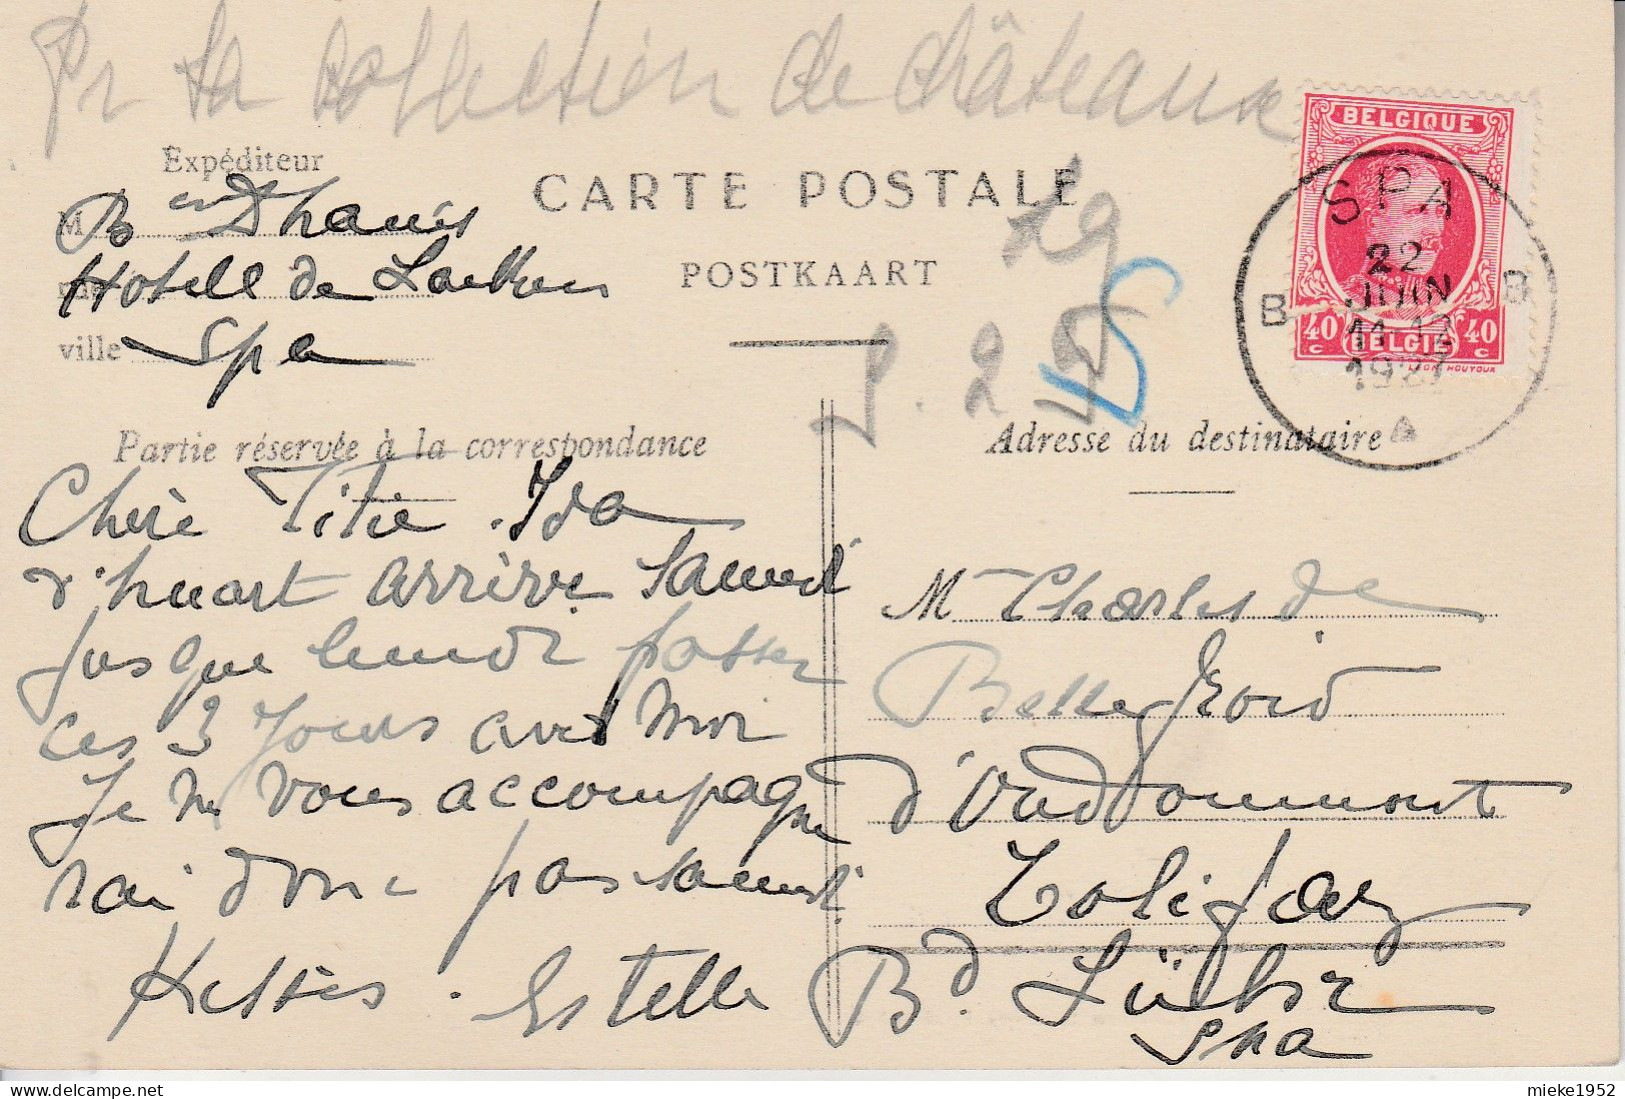 Pr la collection de châteaux
Expéditeur
M Bon Dhanis
rue Hotell de Laeken
ville Spa
CARTE POSTALE
POSTKAART
Lg
S. 25
BELGIQUE
SPA
22
JUIN
11-12
1927
B B
40 c BELGIË 40 c
LEON HOUYOUX
Partie réservée à la correspondance
Adresse du destinataire
Chère Titie . Ida
d'huart arrive Samedi
jusque lundi passer
ces 3 jours avec moi
Je ne vous accompagne
rai donc pas samedi.
Kesses . Estelle
Me Charles de
Bellefroid
d'Oudoumont
Tolifaz
Bd.
Spa
mieke1952